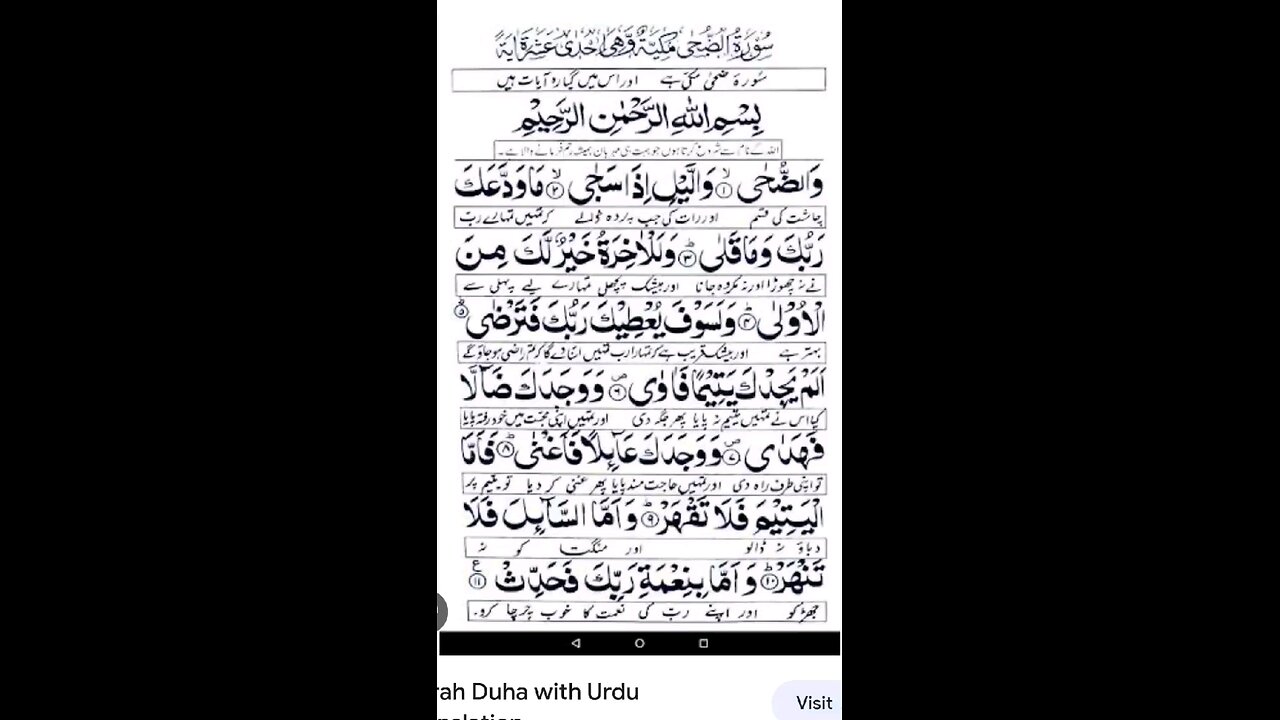 سُوْرَةُ الضُّحٰى مَكِّيَّةٌ وَّهِىَ اِحْدٰى عَشَرَةَ اٰيَةً
سُورۂ ضحیٰ مکی ہے اور اس میں گیارہ آیات ہیں
بِسْمِ اللّٰهِ الرَّحْمٰنِ الرَّحِيْمِ
اللہ کے نام سے شروع کرتا ہوں جو بہت ہی مہربان ہمیشہ رحم فرمانے والا ہے۔
وَالضُّحٰى ۙ﴿۱﴾ وَالَّيْلِ اِذَا سَجٰى ۙ﴿۲﴾ مَا وَدَّعَكَ
چاشت کی قسم اور رات کی جب پردہ ڈالے کہ تمہیں تمہارے رب
رَبُّكَ وَمَا قَلٰى ؕ﴿۳﴾ وَلَلْاٰخِرَةُ خَيْرٌ لَّكَ مِنَ
نے نہ چھوڑا اور نہ مکروہ جانا اور بیشک پچھلی تمہارے لیے پہلی سے
الْاُوْلٰى ؕ﴿۴﴾ وَلَسَوْفَ يُعْطِيْكَ رَبُّكَ فَتَرْضٰى ؕ﴿۵﴾
بہتر ہے اور بیشک قریب ہے کہ تمہارا رب تمہیں اتنا دے گا کہ تم راضی ہو جاؤ گے
اَلَمْ يَجِدْكَ يَتِيْمًا فَاٰوٰى ۪﴿۶﴾ وَوَجَدَكَ ضَآلًّا
کیا اس نے تمہیں یتیم نہ پایا پھر جگہ دی اور تمہیں اپنی محبت میں خود رفتہ پایا
فَهَدٰى ۪﴿۷﴾ وَوَجَدَكَ عَآئِلًا فَاَغْنٰى ؕ﴿۸﴾ فَاَمَّا
تو اپنی طرف راہ دی اور تمہیں حاجت مند پایا پھر غنی کر دیا تو یتیم پر
الْيَتِيْمَ فَلَا تَقْهَرْ ؕ﴿۹﴾ وَاَمَّا السَّآئِلَ فَلَا
دباؤ نہ ڈالو اور منگتا کو نہ
تَنْهَرْ ؕ﴿۱۰﴾ وَاَمَّا بِنِعْمَةِ رَبِّكَ فَحَدِّثْ ﴿۱۱﴾ ع
جھڑکو اور اپنے رب کی نعمت کا خوب چرچا کرو۔
rah Duha with Urdu
Visit